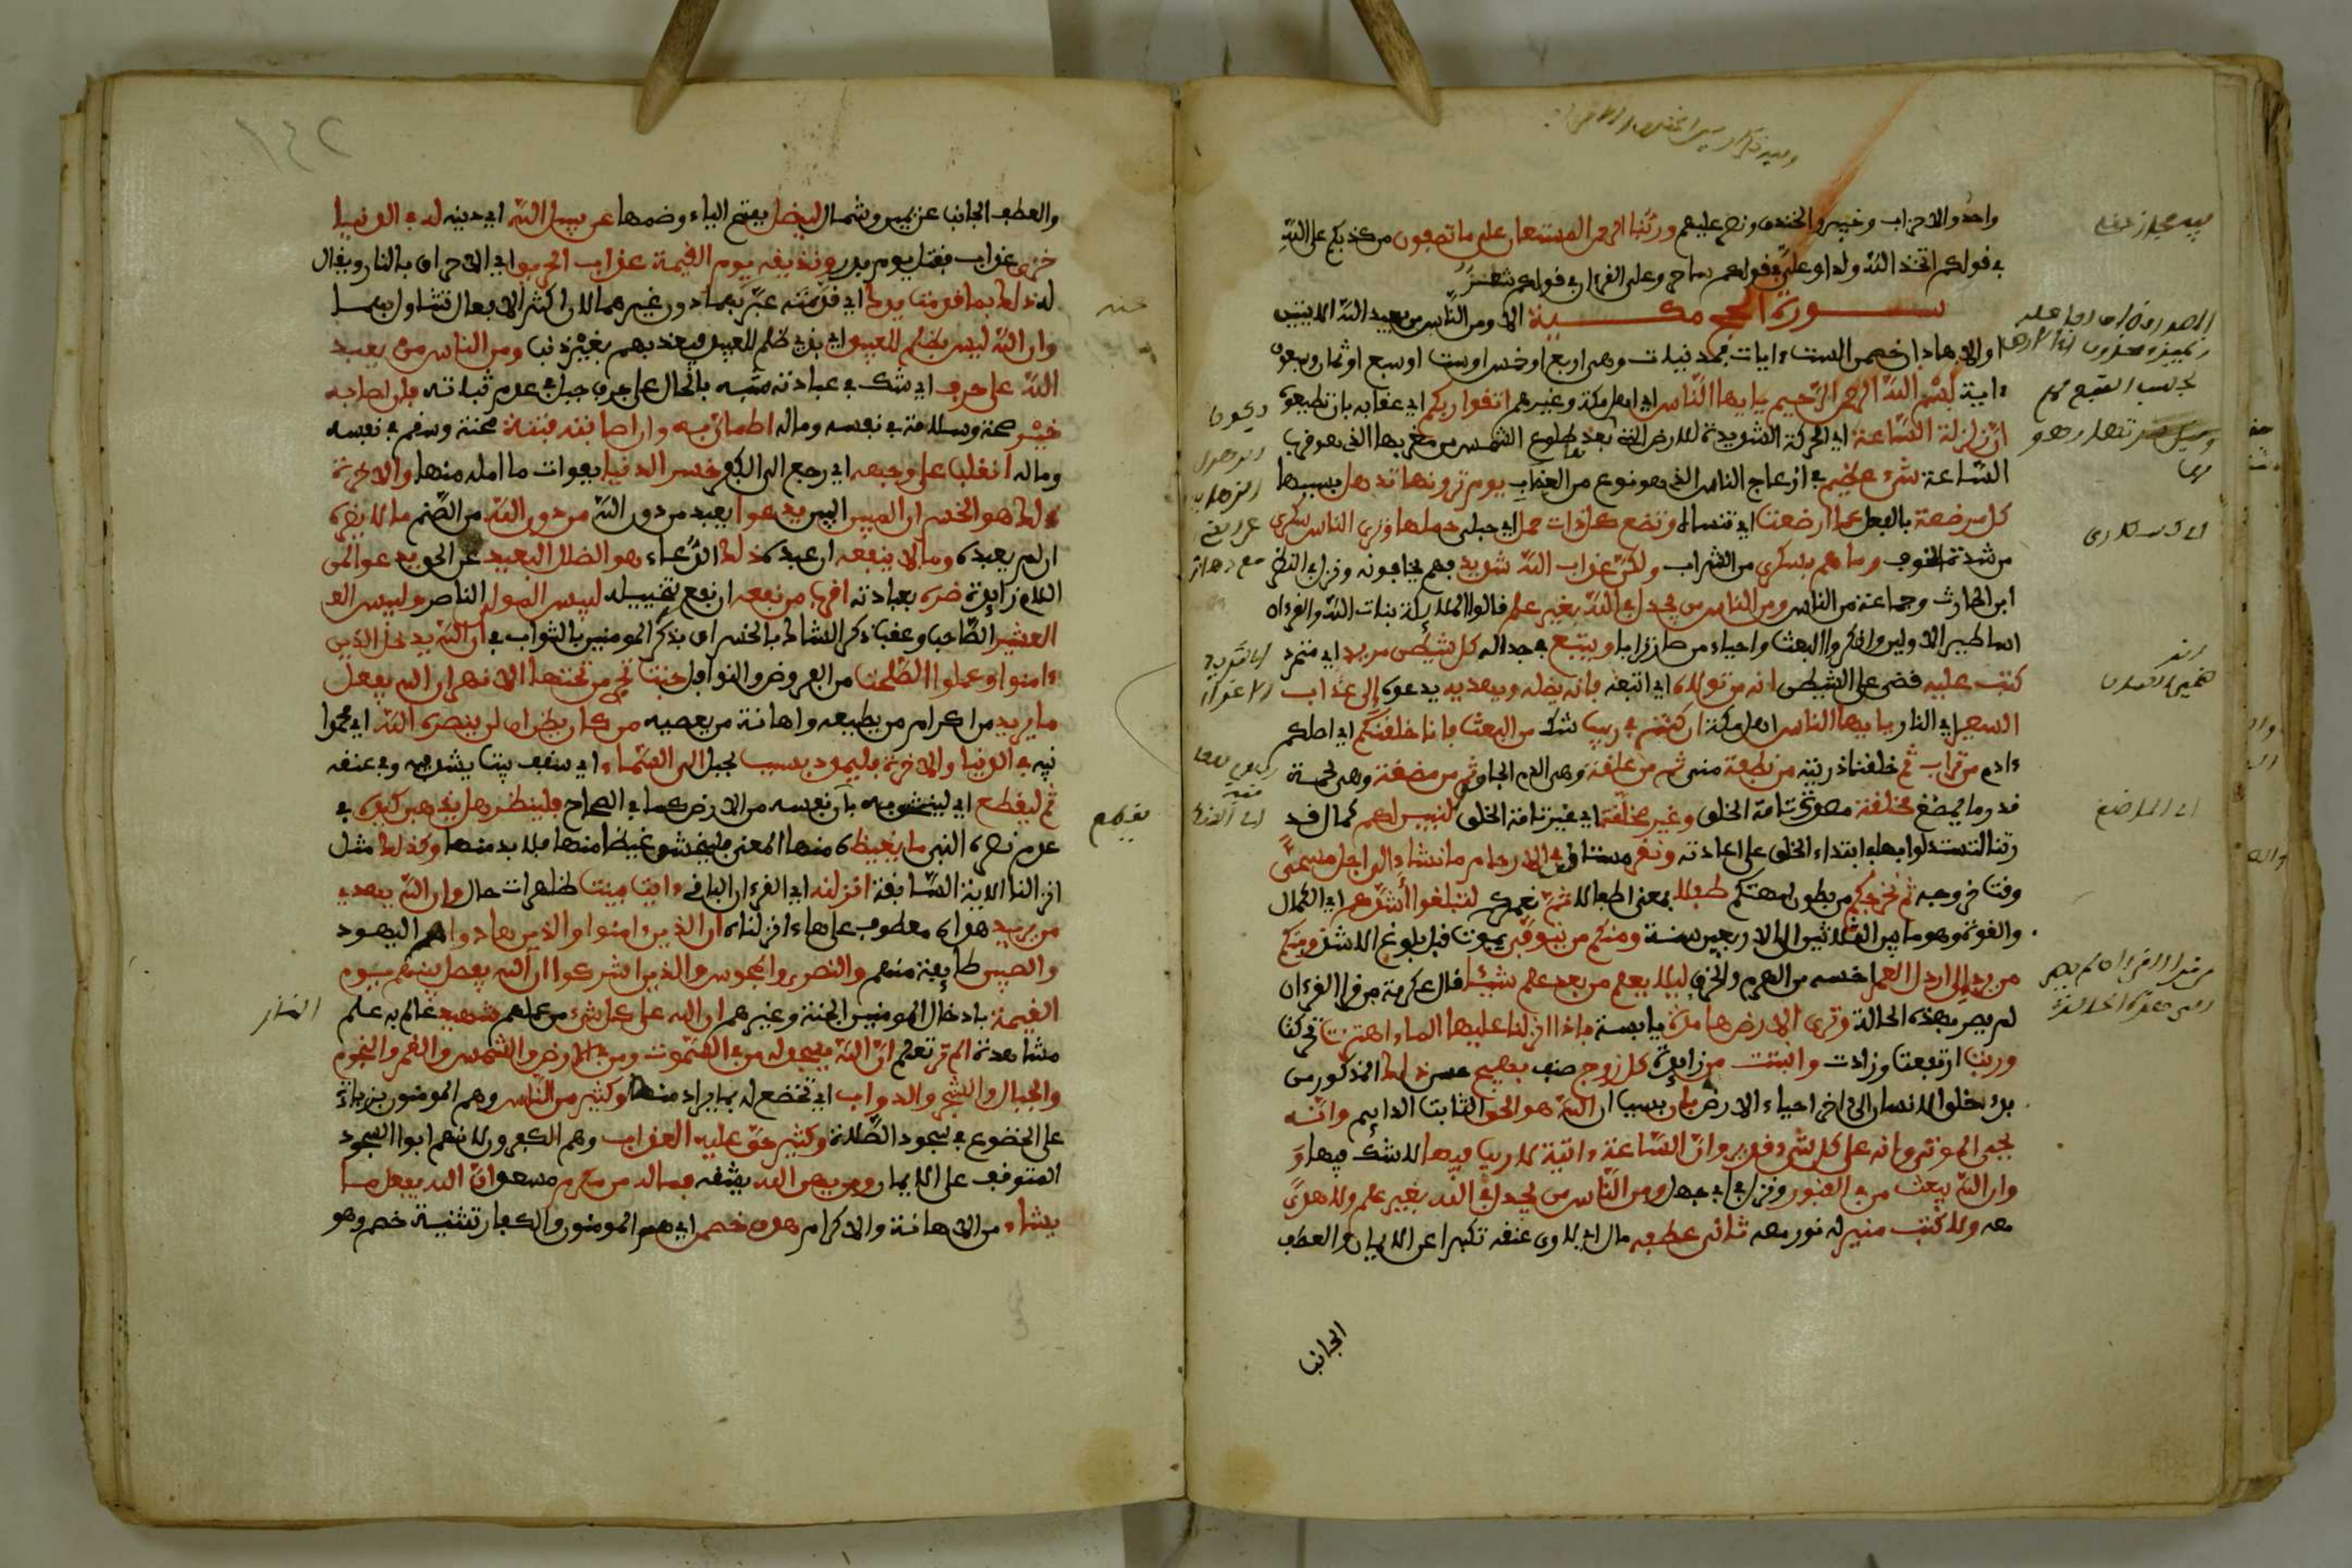 واحد والاحزاب وخيبر والخندق ونصر عليهم وربنا الرحمن المستعان على ما تصفون من كذبكم على الله
في قولكم اتخذ الله ولدا وعلي في قولكم ساحر وعلى القرءان في قولكم شعر
سورة الحج مكية الا ومن الناس من يعبد الله الايتين
او الا هاذان خصمن الست ءايات فمدنيات وهى اربع او خمس او ست او سبع او ثمان وسبعون
ءاية بسم الله الرحمن الرحيم يايها الناس اي اهل مكة وغيرهم اتقوا ربكم اي عقابه بان تطيعوه
ان زلزلة الساعة اي الحركة الشديدة للارض التي بعدها طلوع الشمس من مغربها الذي هو قرب
الساعة شىء عظيم في ازعاج الناس الذي هو نوع من العقاب يوم ترونها تذهل بسببها
كل مرضعة بالفعل عما ارضعت اي تنساه وتضع كل ذات حمل اي حبلى حملها وترى الناس سكرى
من شدة الخوف وما هم بسكرى من الشراب ولكن عذاب الله شديد فهم يخافونه ونزل في النضر
ابن الحارث وجماعة من الناس ومن الناس من يجدل في الله بغير علم قالوا الملائكة بنات الله والقرءان
اساطير الاولين وانكروا البعث واحياء من صار ترابا ويتبع في جداله كل شيطن مريد اي متمرد
كتب عليه قضي على الشيطن انه من تولاه اي اتبعه فانه يضله ويهديه يدعوه الى عذاب
السعير اي النار يايها الناس اهل مكة ان كنتم في ريب شك من البعث فانا خلقنكم اي اصلكم
ءادم من تراب ثم خلقنا ذريته من نطفة مني ثم من علقة وهى الدم الجامد ثم من مضغة وهى لحمة
قدر ما يمضغ مخلقة مصورة تامة الخلق وغير مخلقة اي غير تامة الخلق لنبين لكم كمال قد
رتنا لتستدلوا بها في ابتداء الخلق على اعادته ونقر مستانف في الارحام ما نشاء الى اجل مسمى
وقت خروجه ثم نخرجكم من بطون امهتكم طفلا بمعنى اطفالا ثم نعمركم لتبلغوا اشدكم اي الكمال
والقوة وهو ما بين الثلاثين الى الاربعين سنة ومنكم من يتوفى يموت قبل بلوغ الاشد ومنكم
من يرد الى ارذل العمر اخسه من الهرم والخرف ليلا يعلم من بعد علم شيئا قال عكرمة من قرا القرءان
لم يصر بهذه الحالة وترى الارض هامدة يابسة فاذا انزلنا عليها الماء اهتزت تحركت
وربت ارتفعت وزادت وانبتت من زايدة كل زوج صنف بهيج حسن ذلك المذكور من
بدء خلق الانسان الى اخر احياء الارض بان بسبب ان الله هو الحق الثابت الدايم وانه
يحي الموتى وانه على كل شىء قدير وان الساعة ءاتية لا ريب فيها لا شك فيها و
وان الله يبعث من في القبور ونزل في ابي جهل ومن الناس من يجدل في الله بغير علم ولا هدى
معه ولا كتب منير له نور معه ثاني عطفه حال اي لاوي عنقه تكبرا عن الايمان والعطف
الجانب
والعطف الجانب عن يمين وشمال ليضل بفتح الياء وضمها عن سبيل الله اي دينه له في الدنيا
خزي عذاب فقتل يوم بدر ونذيقه يوم القيمة عذاب الحريق اي الاحراق بالنار ويقال
له ذلك بما قدمت يداك اي قدمته عبر بهما دون غيرهما لان اكثر الافعال تتناول بهما
وان الله ليس بظلم للعبيد اي بذي ظلم للعبيد فيعذبهم بغير ذنب ومن الناس من يعبد
الله على حرف اي شك في عبادته شبه بالحال على حرف جبل في عدم ثباته فان اصابه
خير صحة وسلامة في نفسه وماله اطمان به وان اصابته فتنة محنة وسقم في نفسه
وماله انقلب على وجهه اي رجع الى الكفر خسر الدنيا بفوات ما امله منها والاخرة
ذلك هو الخسران المبين البين يدعوا يعبد من دون الله من دون الله من الصنم ما لا يضره
ان لم يعبده وما لا ينفعه ان عبده ذلك الدعاء هو الضلل البعيد عن الحق يدعوا لمن
اللام زايدة ضره بعبادته اقرب من نفعه ان نفع بتخييله لبيس المولى الناصر ولبيس الع
العشير الصاحب وعقب ذكر الشاك بالخسران بذكر المومنين بالثواب في ان الله يدخل الذين
ءامنوا وعملوا الصلحت من الفروض والنوافل جنت تجري من تحتها الانهر ان الله يفعل
ما يريد من اكرام من يطيعه واهانة من يعصيه من كان يظن ان لن ينصره الله اي محمدا
نبيه في الدنيا والاخرة فليمدد بسبب بحبل الى السماء اي سقف بيت يشده فيه وفي عنقه
ثم ليقطع اي ليختنق به بان نفسه من الارض كما في الصحاح فلينظر هل يذهبن كيده في
عدم نصرة النبي ما يغيظه منها المعنى فليختنق غيظا منها فلا بد منها وكذلك مثل
انزلنا الاية السابقة انزلنه اي القرءان الباقي ءايت بينت ظاهرات حال وان الله يهدي
من يريد هداه معطوف على هاء انزلناه ان الذين ءامنوا والذين هادوا هم اليهود
والصبين طايفة منهم والنصرى والمجوس والذين اشركوا ان الله يفصل بينهم يوم
القيمة بادخال المومنين الجنة وغيرهم ان الله على كل شىء من عملهم شهيد عالم به علم
مشاهدة الم تر تعلم ان الله يسجد له من في السموت ومن في الارض والشمس والقمر والنجوم
والجبال والشجر والدواب اي تخضع له بما يراد منها وكثير من الناس وهم المومنون بزيادة
على الخضوع في سجود الصلاة وكثير حق عليه العذاب وهم الكفرون لانهم ابوا السجود
المتوقف على الايمان ومن يهن الله يشقه فما له من مكرم مسعد ان الله يفعل ما
يشاء من الاهانة والاكرام هذن خصمن اي هم المومنون والكفار تثنية خصم وهو